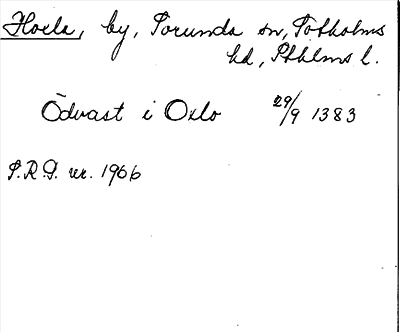 Hoxla, by, Sorunda sn, Sotholms
hd, Sthlms l.
Ödvast i Oxlo 29/9 1383
S.R.G. nr. 1966